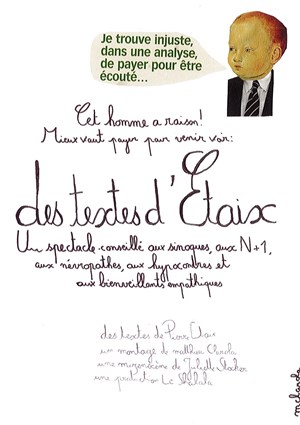 Je trouve injuste,
dans une analyse,
de payer pour être
écouté...
Cet homme a raison!
Mieux vaut payer pour venir voir:
des textes d'Étaix
Un spectacle conseillé aux sinoques, aux N+1,
aux névropathes, aux hypocombres et
aux bienveillants empathiques
des textes de Pierre Etaix
un montage de matthieu
une de Juliette
une production Le Shalala